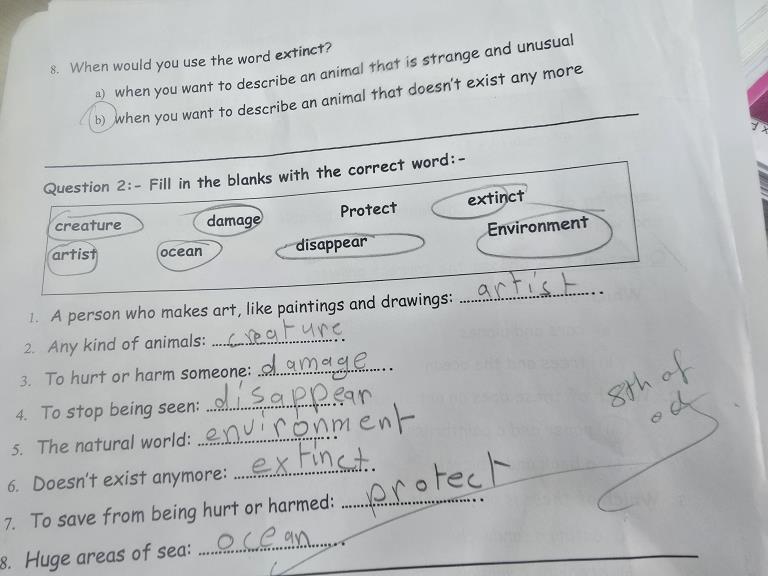 8. When would you use the word extinct?
a) when you want to describe an animal that is strange and unusual
b) when you want to describe an animal that doesn't exist any more
Question 2:- Fill in the blanks with the correct word:-
creature damage Protect extinct
artist ocean disappear Environment
1. A person who makes art, like paintings and drawings: artist
2. Any kind of animals: creature
3. To hurt or harm someone: damage
4. To stop being seen: disappear
5. The natural world: environment
6. Doesn't exist anymore: extinct
7. To save from being hurt or harmed: protect
8. Huge areas of sea: ocean
8th of